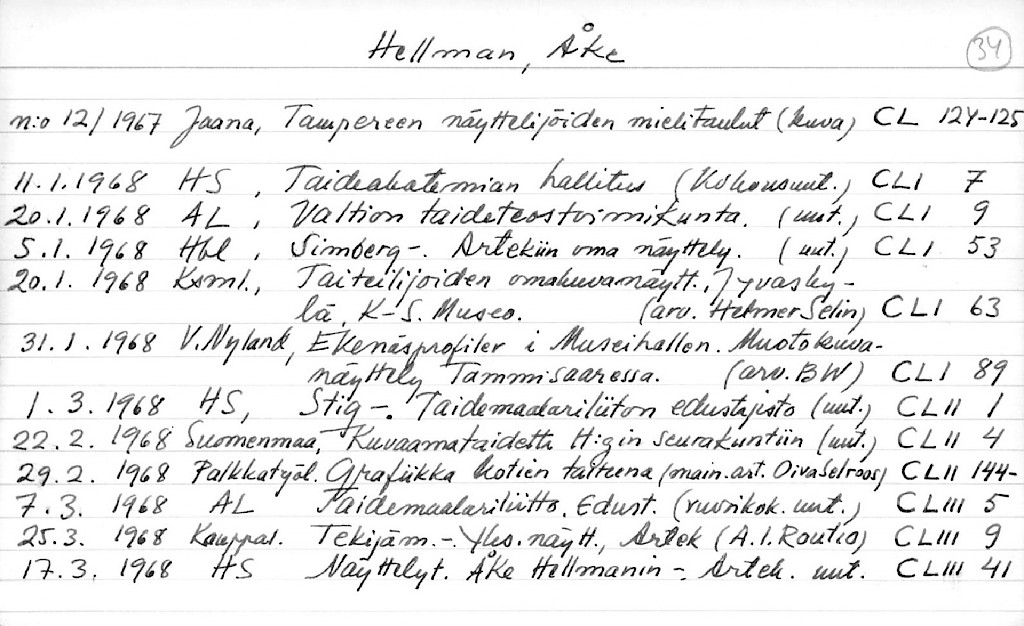 Hellman, Åke
34
n:o 12/1967 Jaana, Tampereen näyttelijöiden mielitaulut (kuva) CL 124-125
11.1.1968 HS, Taideakatemian hallitus (Kokousuut.) CLI 7
20.1.1968 AL, Valtion taideteostoimikunta. (uut.) CLI 9
5.1.1968 Hbl, Simberg-. Artekiin oma näyttely. (uut.) CLI 53
20.1.1968 Ksml., Taiteilijoiden omakuvanäytt., Jyväsky-
lä, K-S. Museo. (arv. Helmer Selin) CLI 63
31.1.1968 V.Nyland, Ekenäsprofiler i Museihallen. Muotokuva-
näyttely Tammisaaressa. (arv. BW) CLI 89
1.3.1968 HS, Stig-. Taidemaalariliiton edustajisto (uut.) CLII 1
22.2.1968 Suomenmaa, Kuvaamataidetta H:gin seurakuntiin (uut.) CLII 4
29.2.1968 Palkkatyöl. Grafiikka kotien taiteena (main. art. Oiva Selroos) CLII 144-
7.3.1968 AL Taidemaalariliitto. Edust. (vuosikok. uut.) CLIII 5
25.3.1968 Kauppal. Tekijäm.-. Yks. näytt., Artek (A.I. Routio) CLIII 9
17.3.1968 HS Näyttelyt. Åke Hellmanin-. Artek. uut. CLIII 41